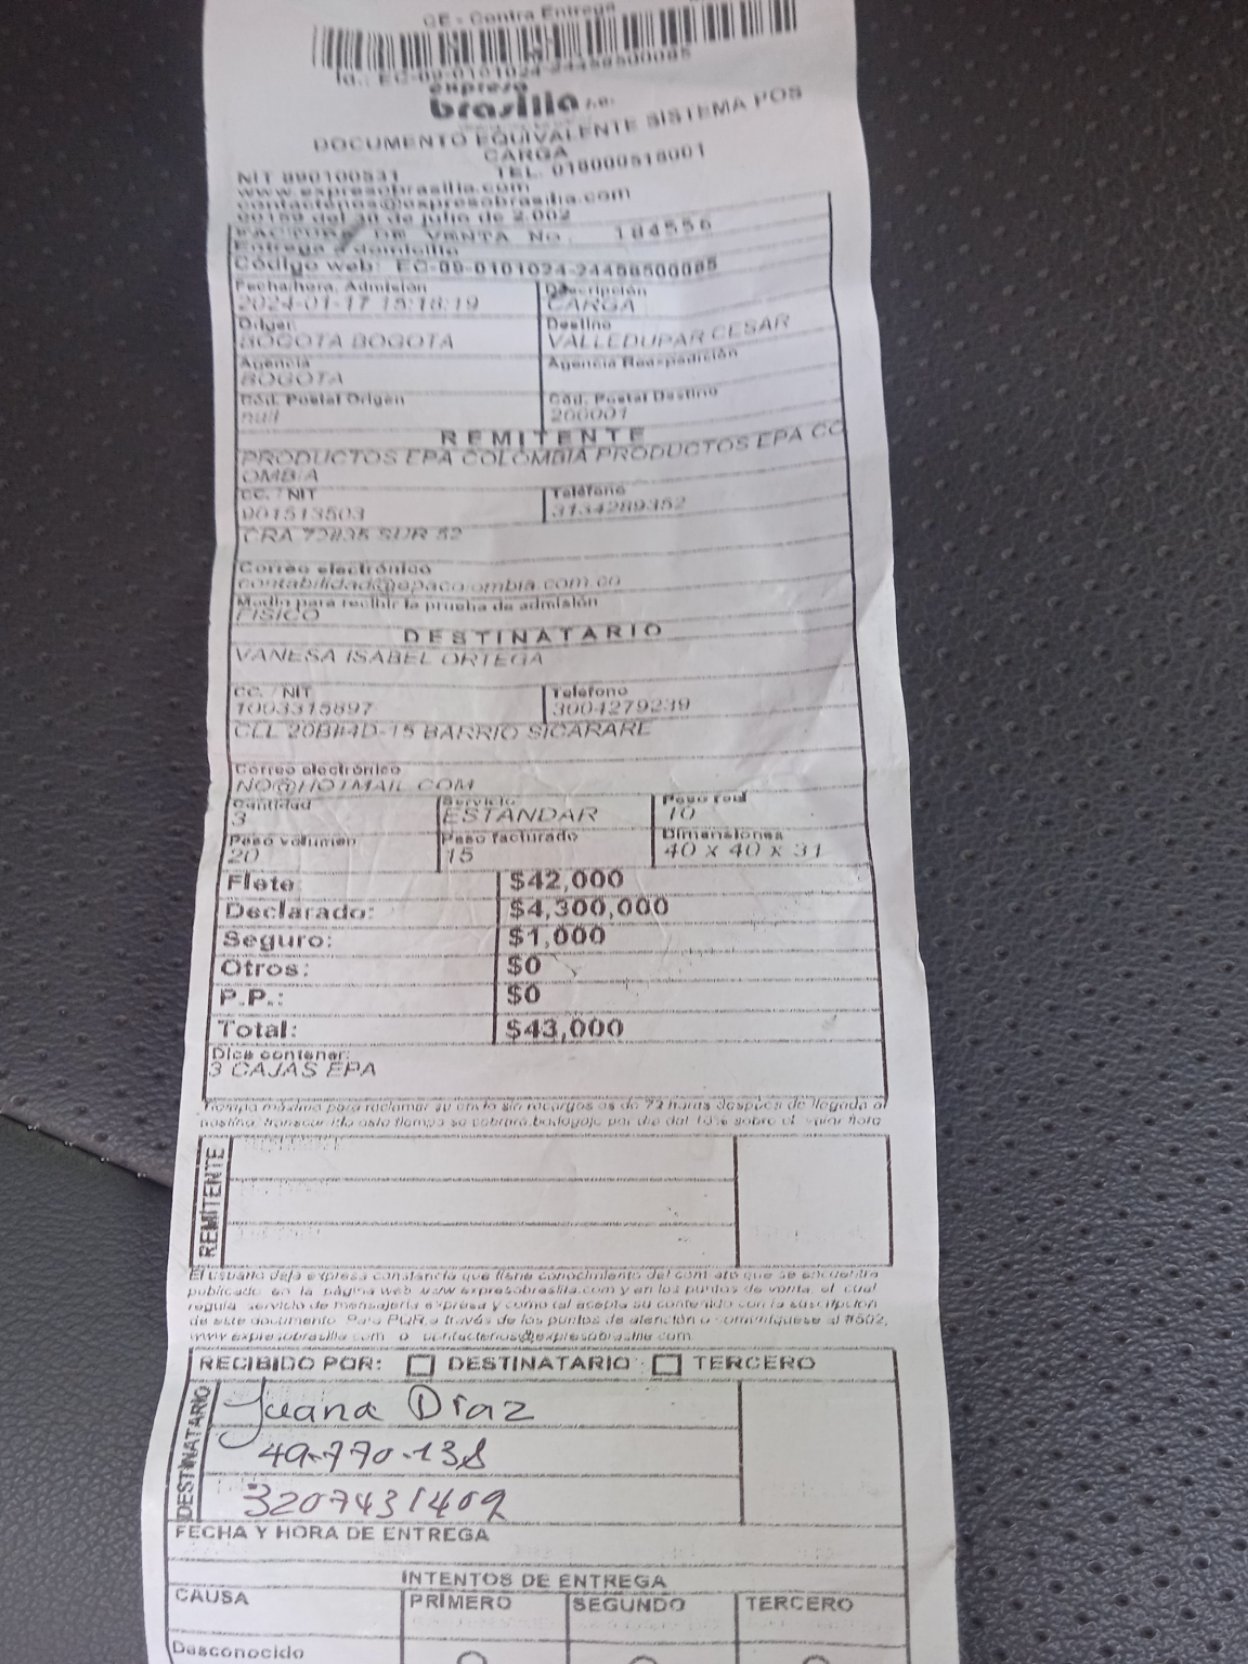 CE - Contra Entrega
Id.: EC-09-0101024-24458500085
expreso
brasilia s.a.
DOCUMENTO EQUIVALENTE SISTEMA POS
CARGA
NIT 890100531 TEL. 018000518001
www.expresobrasilia.com
contactenos@expresobrasilia.com
00150 del 30 de julio de 2.002
FACTURA DE VENTA No. 184556
Entrega a domicilio
Código web: EC-09-0101024-24458500085
Fecha/hora. Admisión Descripción
2024-01-17 15:18:19 CARGA
Origen Destino
BOGOTA BOGOTA VALLEDUPAR CESAR
Agencia Agencia Reexpedición
BOGOTA
Cód. Postal Origen Cód. Postal Destino
null 200001
REMITENTE
PRODUCTOS EPA COLOMBIA PRODUCTOS EPA CO
OMBIA
CC. / NIT Teléfono
901513503 3134289352
CRA 72#35 SUR 52
Correo electrónico
contabilidad@epacolombia.com.co
Medio para recibir la prueba de admisión
FISICO
DESTINATARIO
VANESA ISABEL ORTEGA
CC. / NIT Teléfono
1003315897 3004279239
CLL 20B#4D-15 BARRIO SICARARE
Correo electrónico
NO@HOTMAIL.COM
Cantidad Servicio Peso real
3 ESTANDAR 10
Peso volumen Peso facturado Dimensiones
20 15 40 x 40 x 31
Flete: $42,000
Declarado: $4,300,000
Seguro: $1,000
Otros: $0
P.P.: $0
Total: $43,000
Dice contener:
3 CAJAS EPA
Tiempo máximo para reclamar su envío sin recargos es de 72 horas después de llegada al
destino, transcurrido este tiempo se cobrará bodegaje por día del 10% sobre el valor flete
REMITENTE
El usuario deja expresa constancia que tiene conocimiento del contrato que se encuentra
publicado en la página web www.expresobrasilia.com y en los puntos de venta, el cual
regula servicio de mensajería expresa y como tal acepta su contenido con la suscripción
de este documento. Para PQR a través de los puntos de atención o comuníquese al #502,
www.expresobrasilia.com o contactenos@expresobrasilia.com
RECIBIDO POR: DESTINATARIO TERCERO
DESTINATARIO
Juana Díaz
49.770.138
3207431409
FECHA Y HORA DE ENTREGA
INTENTOS DE ENTREGA
CAUSA PRIMERO SEGUNDO TERCERO
Desconocido